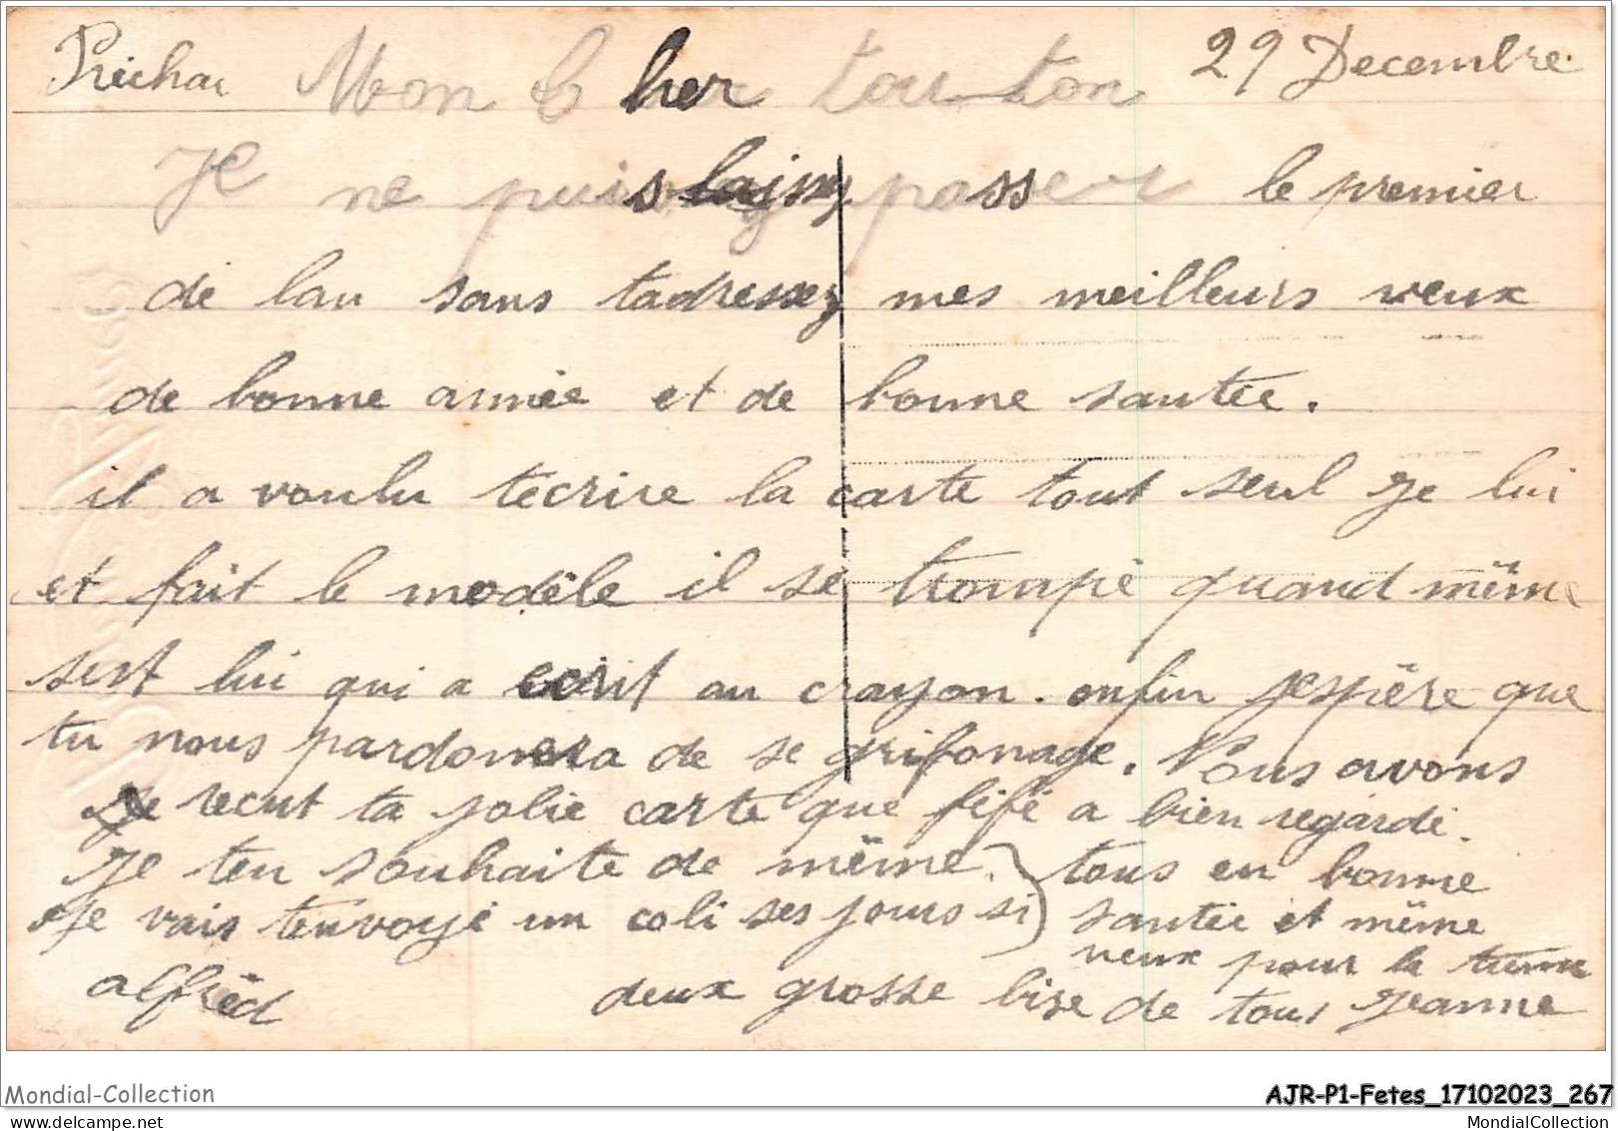 Préchac Mon Cher tou-ton 29 Decembre
Je ne puis passer le premier
de lan sans tadressez mes meilleurs veux
de bonne année et de bonne santée.
il a voulu técrire la carte tout seul je lui
et fait le modéle il sé trompé quand même
sest lui qui a ecrit au crayon. enfin jespère que
tu nous pardonnera de se grifonage. Nous avons
recut ta jolie carte que fifi a bien regardé.
Je ten souhaite de même. tous en bonne
Je vais ténvoyé un coli ses jours si santée et même
veux pour la
alfréd deux grosse bise de tous Jeanne
Mondial-Collection
AJR-P1-Fetes_17102023_267
www.delcampe.net
MondialCollection